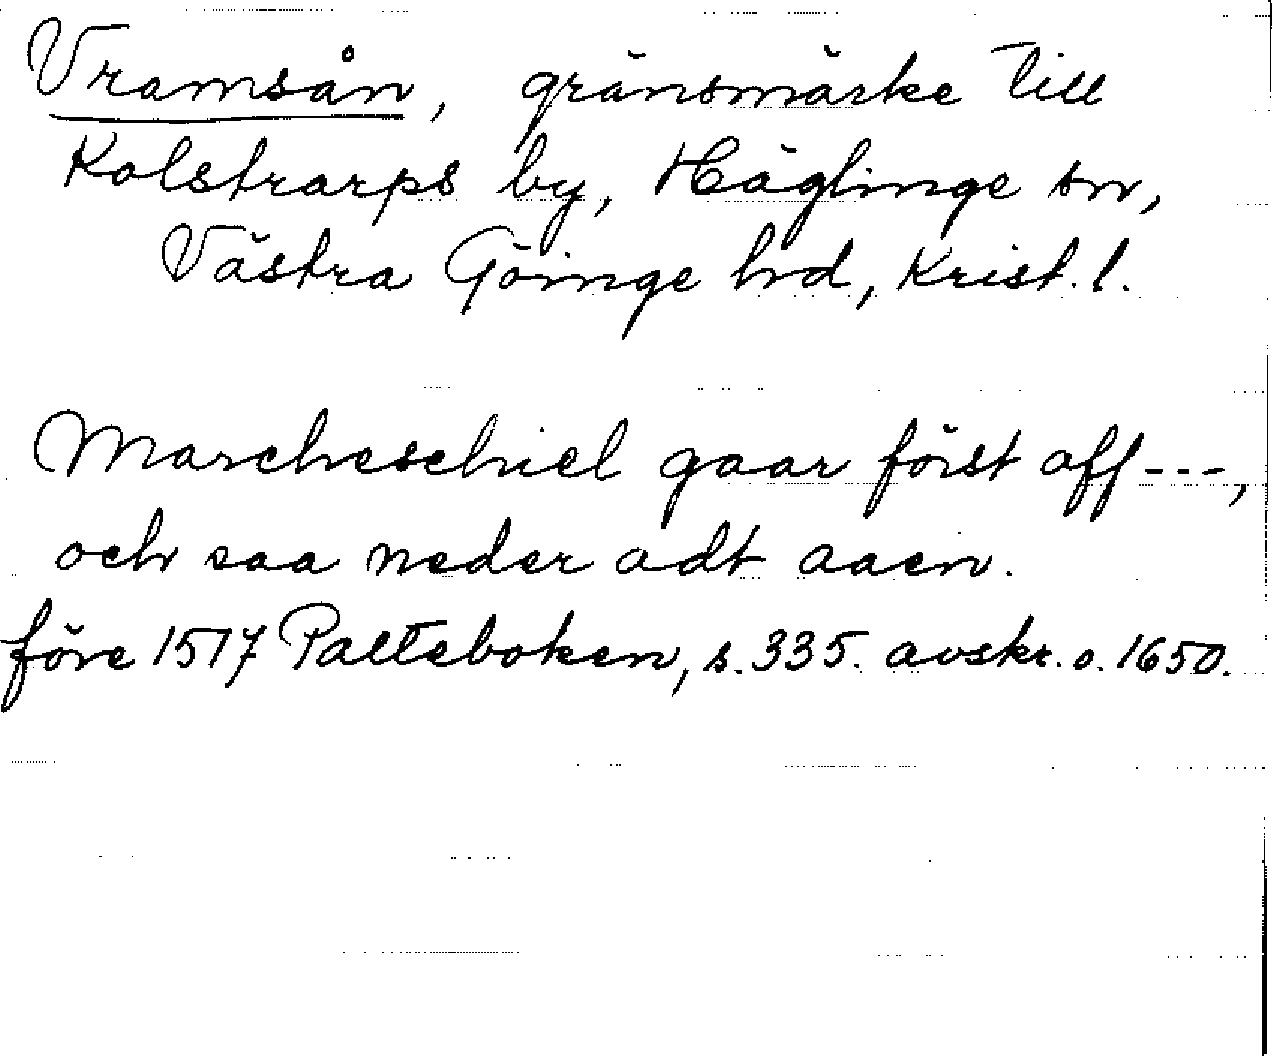 Vramsån, gränsmärke till
Kolstrarps by, Häglinge sn,
Västra Göinge hrd, Krist. l.
Marcheschiel gaar först aff ---,
och saa neder adt aaen.
före 1517 Palteboken, s. 335. avskr. o. 1650.